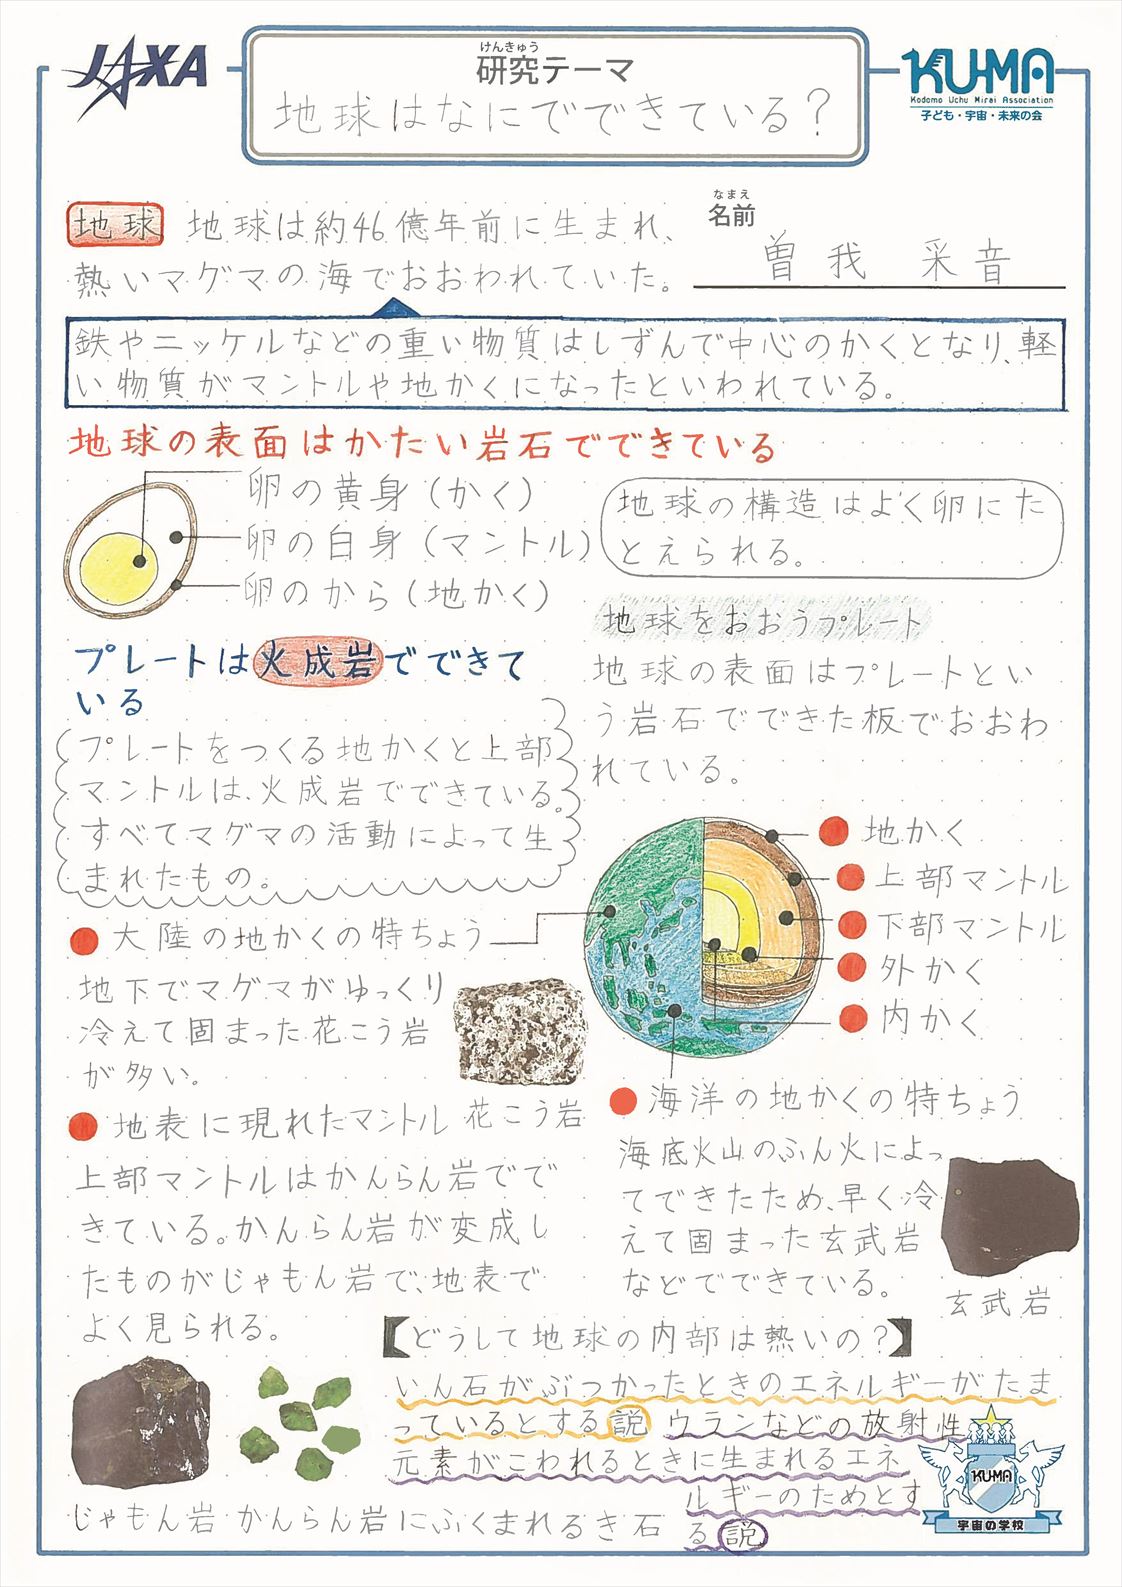 JAXA
けんきゅう
研究テーマ
地球はなにでできている?
KUMA
Kodomo Uchu Mirai Association
子ども・宇宙・未来の会
なまえ
名前
曽我 采音
地球 地球は約46億年前に生まれ、
熱いマグマの海でおおわれていた。
鉄やニッケルなどの重い物質はしずんで中心のかくとなり、軽
い物質がマントルや地かくになったといわれている。
地球の表面はかたい岩石でできている
卵の黄身(かく)
卵の白身(マントル)
卵のから(地かく)
地球の構造はよく卵にた
とえられる。
地球をおおうプレート
地球の表面はプレートとい
う岩石でできた板でおおわ
れている。
プレートは火成岩でできて
いる
プレートをつくる地かくと上部
マントルは、火成岩でできている。
すべてマグマの活動によって生
まれたもの。
地かく
上部マントル
下部マントル
外かく
内かく
大陸の地かくの特ちょう
地下でマグマがゆっくり
冷えて固まった花こう岩
が多い。
花こう岩
地表に現れたマントル
上部マントルはかんらん岩でで
きている。かんらん岩が変成し
たものがじゃもん岩で、地表で
よく見られる。
海洋の地かくの特ちょう
海底火山のふん火によっ
てできたため、早く冷
えて固まった玄武岩
などでできている。
玄武岩
【どうして地球の内部は熱いの?】
いん石がぶつかったときのエネルギーがたま
っているとする説 ウランなどの放射性
元素がこわれるときに生まれるエネ
ルギーのためとす
る説
じゃもん岩 かんらん岩にふくまれるき石
KUMA
宇宙の学校